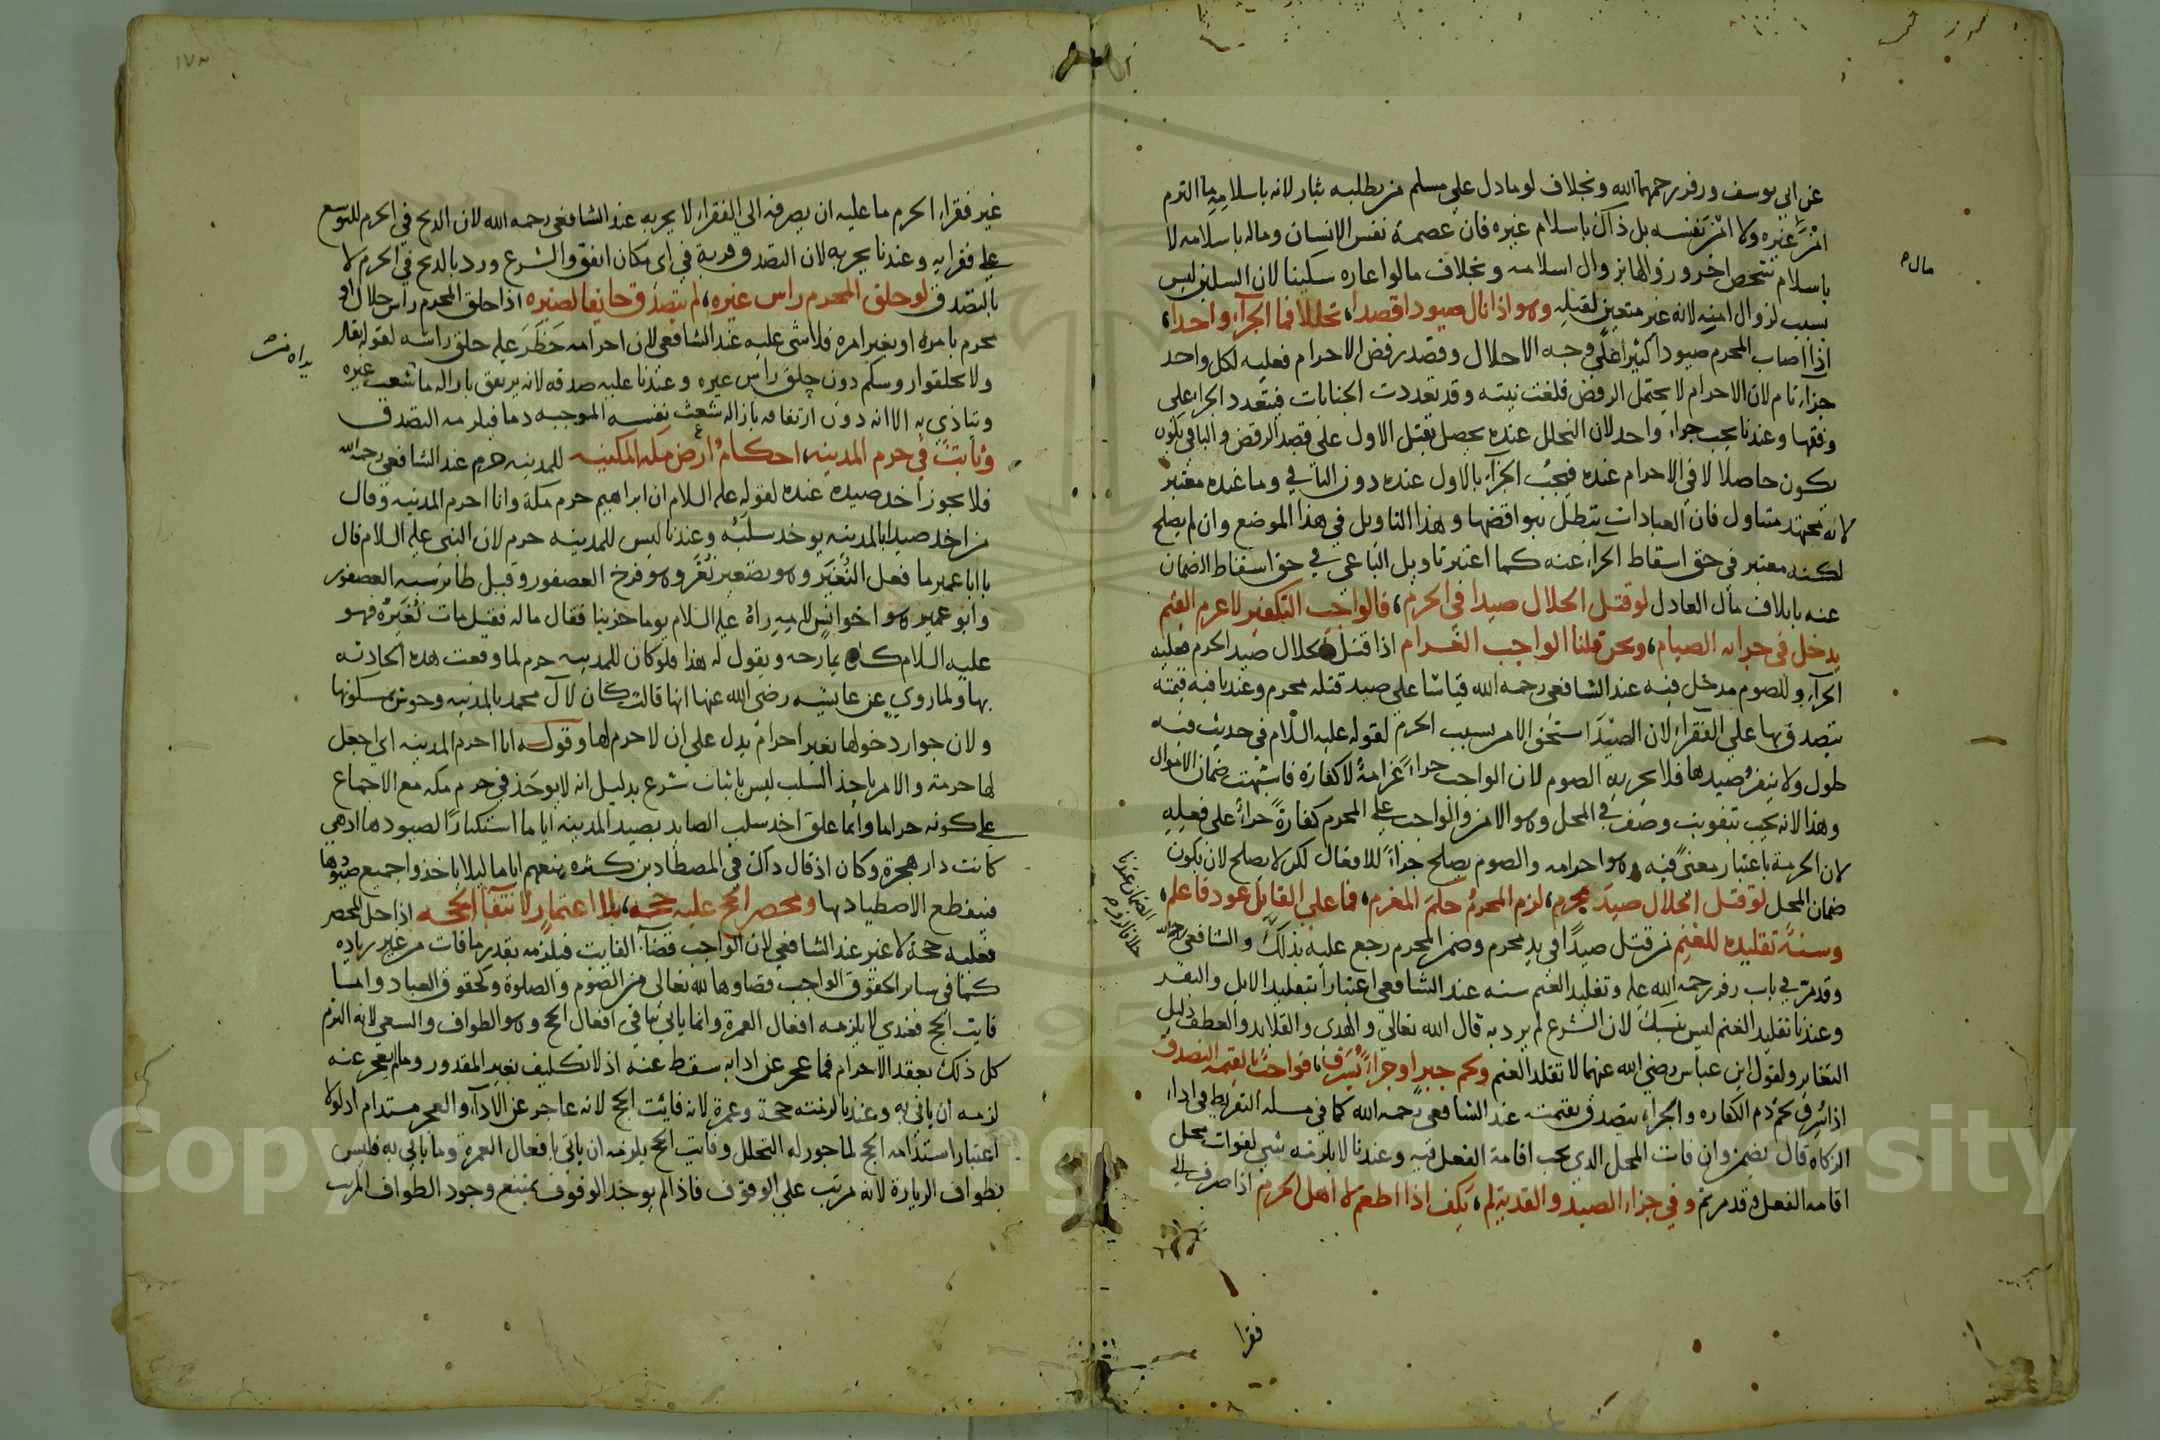 عن ابي يوسف وزفر رحمهما الله وبخلاف لو ما دل علي مسلم من يطلبه بثار لانه باسلامه ما التزم
امن غيره ولا امن نفسه بل ذاك باسلام غيره فان عصمة نفس الانسان وماله باسلامه لا
باسلام شخص اخر وزوالها بزوال اسلامه وبخلاف ما لو اعاره سكينا لان السكين ليس
بسبب لزوال امنه لانه غير متعين لقتله وهو اذا نال صيودا قصدا، تحللا فما الجزآء واحدا،
اذا اصاب المحرم صيودا كثيرا علي وجه الاحلال وقصد رفض الاحرام فعليه لكل واحد
جزاء تام لان الاحرام لا يحتمل الرفض فلغت نيته وقد تعددت الجنايات فيتعدد الجزاء علي
وفقها وعندنا يجب جزاء واحد لان التحلل عنده يحصل بقتل الاول علي قصد الرفض والباقي يكون
يكون حاصلا لا في الاحرام عنده فيجب الجزآء بالاول عنده دون الثاني وما عنده معتبر
لانه مجتهد متاول فان العبادات تبطل بنواقضها وهذا التاويل في هذا الموضع وان لم يصلح
لكنه معتبر في حق اسقاط الجزاء عنه كما اعتبر تاويل الباغي في حق اسقاط الضمان
عنه باتلاف مال العادل لو قتل الحلال صيدا في الحرم، فالواجب التكفير لا غرم القيم
يدخل في جزائه الصيام، ونحن قلنا الواجب الغرام اذا قتل الحلال صيد الحرم فعليه
الجزآء وللصوم مدخل فيه عند الشافعي رحمه الله قياسا علي صيد قتله محرم وعندنا فيه قيمته
يتصدق بها علي الفقراء لان الصيد استحق الامن بسبب الحرم لقوله عليه السلام في حديث فيه
طول ولا ينفر صيدها فلا يجزيه الصوم لان الواجب جزاء غرامة لا كفارة فاشبهت ضمان الاموال
وهذا لانه يجب بتفويت وصف في المحل وهو الامن والواجب علي المحرم كفارة جزاء علي فعله
لان الحرمة باعتبار معني فيه وهو احرامه والصوم يصلح جزاء للافعال لكن لا يصلح لان يكون
ضمان المحل لو قتل الحلال صيد محرم، لزم المحرم حلم المغرم، فما علي القاتل عود فاعلم،
وسنة تقليده للغنم من قتل صيدا في يد محرم وضمن المحرم رجع عليه بذلك والشافعي رحمه الله
وقد مر في باب زفر رحمة الله عليه وتقليد الغنم سنة عند الشافعي اعتبارا بتقليد الابل والبقر
وعندنا تقليد الغنم ليس بنسك لان الشرع لم يرد به قال الله تعالي والهدي والقلايد والعطف دليل
التغاير ولقول ابن عباس رضي الله عنهما لا تقلد الغنم ولحم جبر او جزاء يسرق، فواجب بالقيمة التصدق
اذا سرق لحم دم الكفاره والجزاء يتصدق بقيمته عند الشافعي رحمه الله كما في مسله التفريط في اداء
الزكاه قال يضمن وان فات المحل الذي يجب اقامة الفعل فيه وعندنا لا يلزمه شي لفوات محل
اقامة الفعل وقد مر ثم وفي جزاء الصيد والفدية لم، تكف اذا اطعم لا اهل الحرم اذا صرف الي
مال م
الضمان عندنا
خلافا لزفر رحمه
فقرا
١٧٣
غير فقراء الحرم ما عليه ان يصرفه الي الفقراء لا يجزيه عند الشافعي رحمه الله لان الذبح في الحرم للتوسع
علي فقرايه وعندنا يجزيه لان التصدق قربة في اي مكان اتفق والشرع ورد بالذبح في الحرم لا
بالتصدق لو حلق المحرم راس غيره، لم يتصدق حانيفا لضيره اذا حلق المحرم راس حلال او
محرم بامره او بغير امره فلا شي عليه عند الشافعي لان احرامه حظر عليه حلق راسه لقوله تعالي
ولا تحلقوا روسكم دون حلق راس غيره وعندنا عليه صدقه لانه يرتفق بازاله ما شعث غيره
ويتاذي به الا انه دون ارتفاقه بازاله شعث نفسه الموجبه دما فيلزمه التصدق
وثابت في حرم المدينه، احكام ارض مكة المكينه للمدينه حرم عند الشافعي رحمه الله
فلا يجوز اخذ صيده عنده لقوله عليه السلام ان ابراهيم حرم مكة وانا احرم المدينه وقال
من اخذ صيدا بالمدينه يوخد سلبه وعندنا ليس للمدينه حرم لان النبي عليه السلام قال
يا ابا عمير ما فعل النغير وهو تصغير نغر وهو فرخ العصفور وقيل طائر شبه العصفور
وابو عمير هو اخو انس لامه راه عليه السلام يوما حزينا فقال ما له فقيل مات نغيره فهو
عليه السلام كان يمازحه ويقول له هذا فلو كان للمدينه حرم لما وقعت هذه الحادثه
بها ولما روي عن عايشه رضي الله عنها انها قالت كان لآل محمد بالمدينه وحوش يمسكونها
ولان جواز دخولها بغير احرام يدل علي ان لا حرم لها وقوله انا احرم المدينه اي اجعل
لها حرمة والامر باخذ السلب ليس باثبات شرع بدليل انه لا يوخذ في حرم مكه مع الاجماع
علي كونه حراما وانما علق اخذ سلب الصايد بصيد المدينه اياما استكبارا لصيودها اذ هي
كانت دار هجرة وكان اذ قال ذاك في المصطاد بن كثره يمنعهم اياما ليلا ياخذوا جميع صيودها
فينقطع الاصطياد بها ومحصر الحج عليه حجه، بلا اعتمار لانتفآ الحجه اذا حل المحصر
فعليه حجة لا غير عند الشافعي لان الواجب قضآء الفايت فيلزمه بقدر ما فات من غير زياده
كما في ساير الحقوق الواجب قضاوها لله تعالي من الصوم والصلوة وكحقوق العباد واما
فايت الحج فعندي لا يلزمه افعال العمرة وانما ياتي بباقي افعال الحج وهو الطواف والسعي لانه التزم
كل ذلك بعقد الاحرام فما عجز عن ادايه سقط عنه اذ لا تكليف بغير المقدور وما لم يعجز عنه
لزمه ان ياتي به وعندنا لزمته حجة وعمرة لانه فايت الحج لانه عاجز عن الادآء والعجز مستدام اذ لولا
اعتبار استدامه الحج لما جوز له التحلل وفايت الحج يلزمه ان ياتي بافعال العمرة وما ياتي به فليس
بطواف الزيارة لانه مرتب علي الوقوف فاذا لم يوجد الوقوف يمتنع وجود الطواف المرتب
Copyright © King Saud University
1957